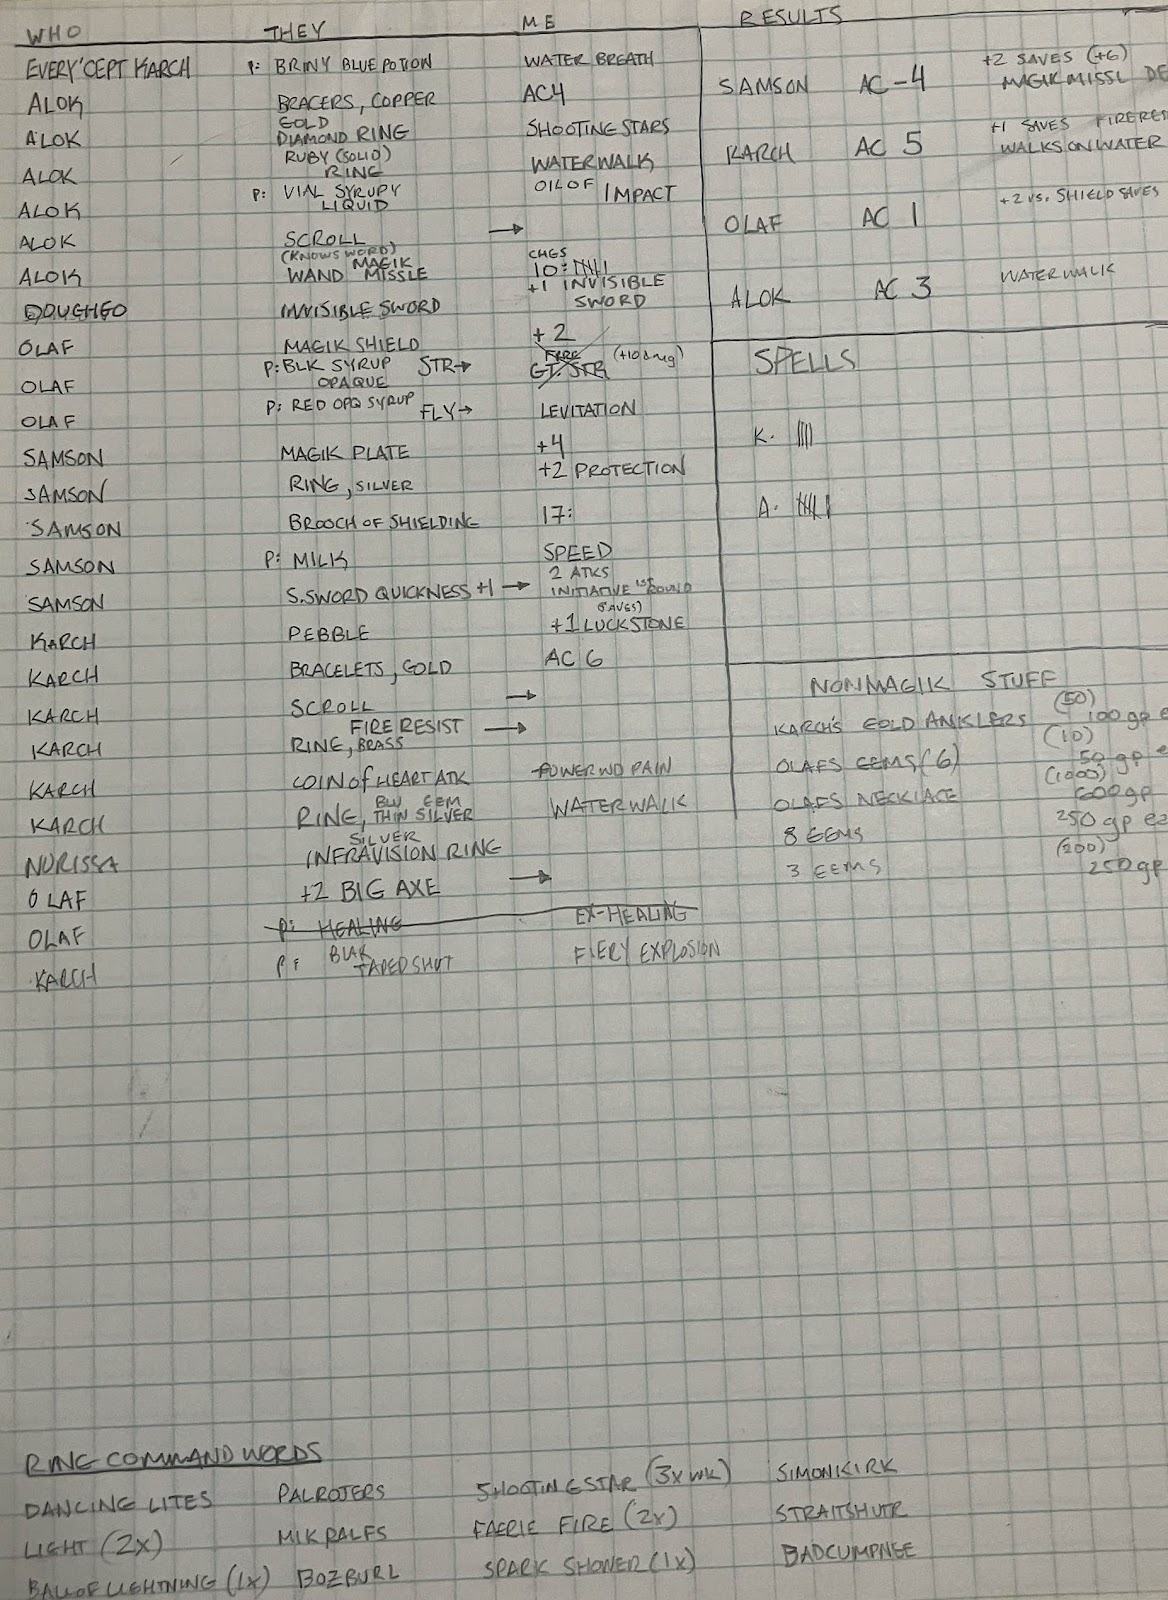 WHO THEY ME RESULTS
EVERY'CEPT KARCH P: BRINY BLUE POTION WATER BREATH
ALOK BRACERS, COPPER AC4
ALOK GOLD DIAMOND RING SHOOTING STARS
ALOK RUBY (SOLID) RING WATERWALK
ALOK P: VIAL SYRUPY LIQUID OIL OF IMPACT
ALOK SCROLL →
ALOK (KNOWS WORD) WAND MAGIK MISSLE CHGS 10:
DOUGHGO INVISIBLE SWORD +1 INVISIBLE SWORD
OLAF MAGIK SHIELD +2
OLAF P: BLK SYRUP OPAQUE STR→ FIRE GT. STR (+10 dmg)
OLAF P: RED OPQ SYRUP FLY→ LEVITATION
SAMSON MAGIK PLATE +4
SAMSON RING, SILVER +2 PROTECTION
SAMSON BROOCH OF SHIELDING 17:
SAMSON P: MILK SPEED
SAMSON S.SWORD QUICKNESS +1 → 2 ATKS INITIATIVE 1ST ROUND
KARCH PEBBLE (SAVES) +1 LUCKSTONE
KARCH BRACELETS, GOLD AC 6
KARCH SCROLL →
KARCH FIRE RESIST RING, BRASS →
KARCH COIN OF HEART ATK POWER WD PAIN
KARCH RING, BLU GEM THIN SILVER WATERWALK
NURISSA SILVER INFRAVISION RING
OLAF +2 BIG AXE →
OLAF P: HEALING EX-HEALING
KARCH P: BLAK TAPED SHUT FIERY EXPLOSION
SAMSON AC -4 +2 SAVES (+6) MAGIK MISSL DE
KARCH AC 5 +1 SAVES FIRERES WALKS ON WATER
OLAF AC 1 +2 vs. SHIELD SAVES
ALOK AC 3 WATERWALK
SPELLS
K. ||||
A.
NONMAGIK STUFF
KARCH'S GOLD ANKLERS (50) 100 gp e
OLAFS GEMS (6) (10) 50 gp e
OLAFS NECKLACE (1000) 600 gp
8 GEMS 250 gp ea
3 GEMS (200) 250 gp
RING COMMAND WORDS
DANCING LITES PALROJERS SHOOTING STAR (3x WK) SIMONKIRK
LIGHT (2x) MIKRALFS FAERIE FIRE (2x) STRAITSHUTR
BALL OF LIGHTNING (1x) BOZBURL SPARK SHOWER (1x) BADCUMPNEE